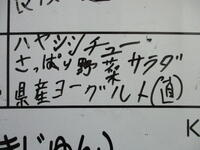 ハヤシシチュー
さっぱり野菜サラダ
県産ヨーグルト(直)
K